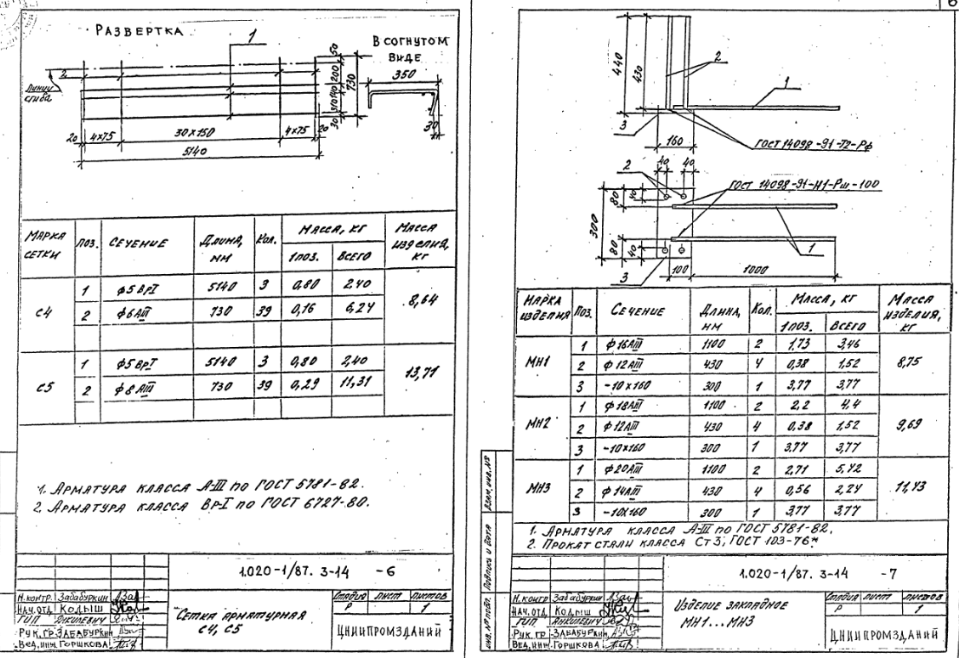 РАЗВЕРТКА
1
В СОГНУТОМ
ВИДЕ
350
2
ЛИНИИ
СГИБА
50
200
140
310
30
730
30
20 4×75 30×150 4×75 20
5140
МАРКА СЕТКИ ПОЗ. СЕЧЕНИЕ ДЛИНА, ММ КОЛ. МАССА, КГ МАССА ИЗДЕЛИЯ, КГ
1 ПОЗ. ВСЕГО
С4 1 ф5 ВрI 5140 3 0,80 2,40 8,64
2 ф6АIII 730 39 0,16 6,24
С5 1 ф5 ВрI 5140 3 0,80 2,40 13,71
2 ф8 АIII 730 39 0,29 11,31
1. АРМАТУРА КЛАССА А-III ПО ГОСТ 5781-82.
2. АРМАТУРА КЛАССА ВрI ПО ГОСТ 6727-80.
1.020-1/87. 3-14 -6
Н.КОНТР. Забабуркин
НАЧ.ОТД. КОДЫШ
ГИП ЯНКИЛЕВИЧ
РУК.ГР. ЗАБАБУРКИН
ВЕД.ИНЖ. ГОРШКОВА
СЕТКА АРМАТУРНАЯ
С4, С5
СТАДИЯ ЛИСТ ЛИСТОВ
Р 1
ЦНИИПРОМЗДАНИЙ
6
3
2
440
430
1
3
160
ГОСТ 14098-91-Т2-Рф
2
40 40
ГОСТ 14098-91-Н1-Рш-100
300
80
40
80
40
1
3
100 1000
МАРКА ИЗДЕЛИЯ ПОЗ. СЕЧЕНИЕ ДЛИНА, ММ КОЛ. МАССА, КГ МАССА ИЗДЕЛИЯ, КГ
1 ПОЗ. ВСЕГО
МН1 1 ф16АIII 1100 2 1,73 3,46 8,75
2 ф12АIII 430 4 0,38 1,52
3 -10×160 300 1 3,77 3,77
МН2 1 ф18АIII 1100 2 2,2 4,4 9,69
2 ф12АIII 430 4 0,38 1,52
3 -10×160 300 1 3,77 3,77
МН3 1 ф20АIII 1100 2 2,71 5,42 11,43
2 ф14АIII 430 4 0,56 2,24
3 -10×160 300 1 3,77 3,77
1. АРМАТУРА КЛАССА А-III ПО ГОСТ 5781-82.
2. ПРОКАТ СТАЛИ КЛАССА Ст3, ГОСТ 103-76*
ВЗАМ.ИНВ.№
ПОДПИСЬ И ДАТА
ИНВ.№ПОДЛ.
1.020-1/87. 3-14 -7
Н.КОНТР. Забабуркин
НАЧ.ОТД. КОДЫШ
ГИП ЯНКИЛЕВИЧ
РУК.ГР. ЗАБАБУРКИН
ВЕД.ИНЖ. ГОРШКОВА
ИЗДЕЛИЕ ЗАКЛАДНОЕ
МН1...МН3
СТАДИЯ ЛИСТ ЛИСТОВ
Р 1
ЦНИИПРОМЗДАНИЙ